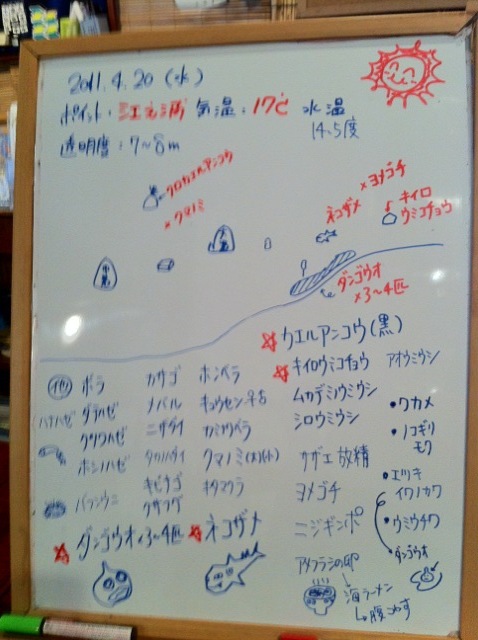 2011.4.20 (水)
ポイント:江之浦 気温:17℃ 水温
14.5度
透明度:7~8m
クロカエルアンコウ
×クマノミ
×ヨメゴチ
ネコザメ
キイロ
ウミコチョウ
ダンゴウオ
×3~4匹
カエルアンコウ(黒)
キイロウミコチョウ アオウミウシ
ムカデミノウミウシ
シロウミウシ
サザエ 放精
ヨメゴチ
ニジギンポ
アメフラシの卵
海ラーメン
↳腹こわす
•ワカメ
•ノコギリ
モク
•エツキ
イワノカワ
•ウミウチワ
•ダンゴウオ
他 ボラ カサゴ ホンベラ
ハナハゼ ダテハゼ メバル キュウセン♀♂
クツワハゼ ニザダイ カミナリベラ
ホシノハゼ タカノハダイ クマノミ(大)(小)
キビナゴ キタマクラ
バフンウニ クサフグ
ダンゴウオ×3~4匹 ネコザメ